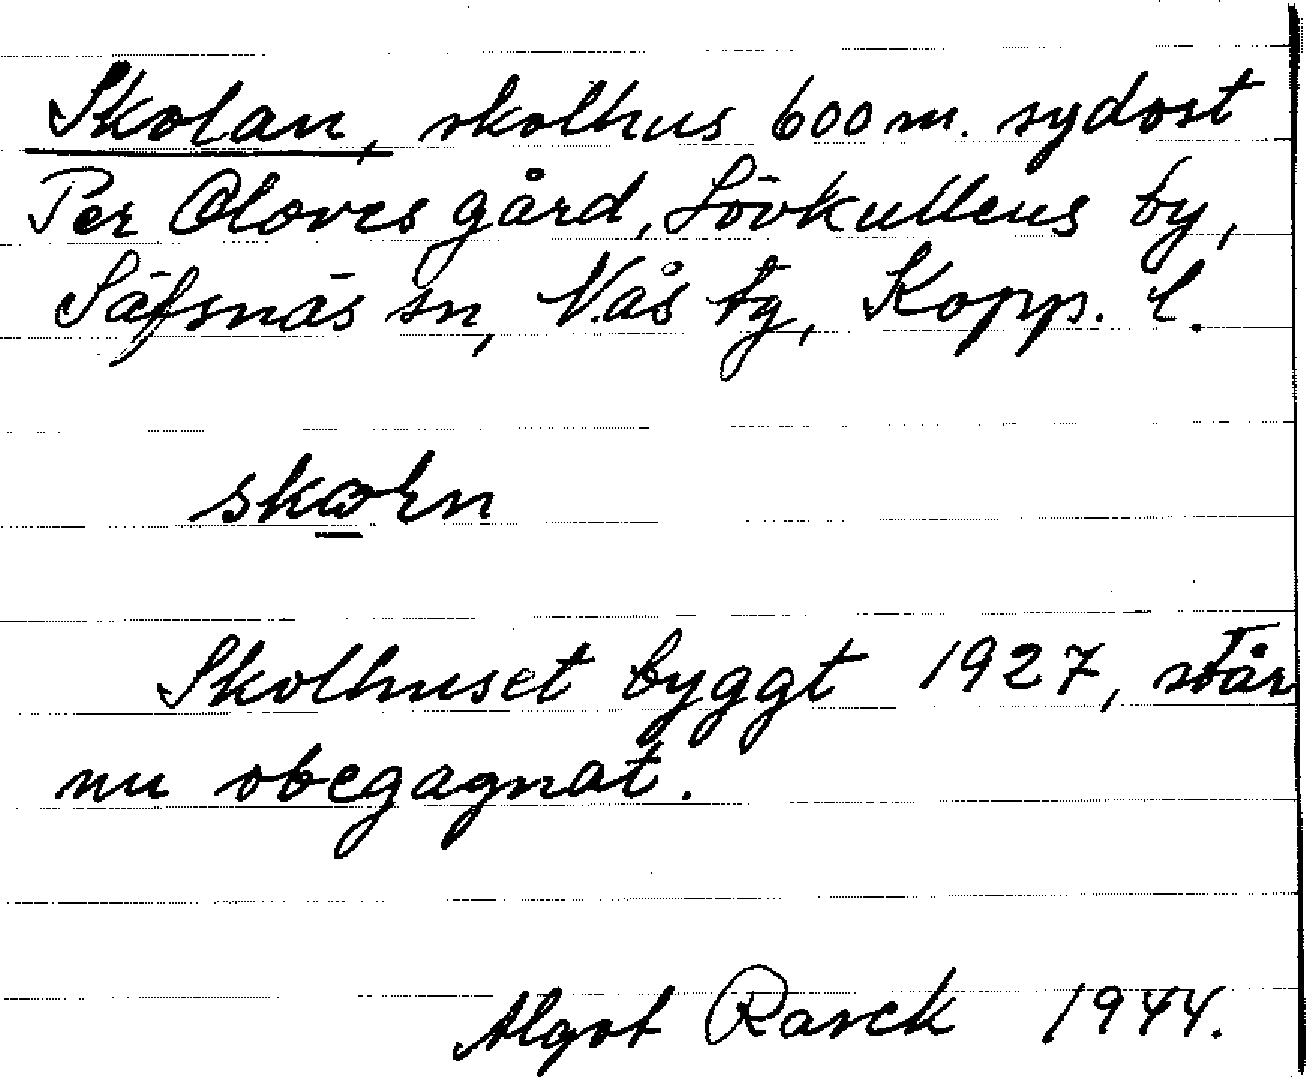 Skolan, skolhus 600 m. sydost
Per Oloves gård, Lövkullens by,
Säfsnäs sn, Nås tg, Kopp. l.
Skolhuset byggt 1927, står
nu obegagnat.
Algot Rarck 1944.